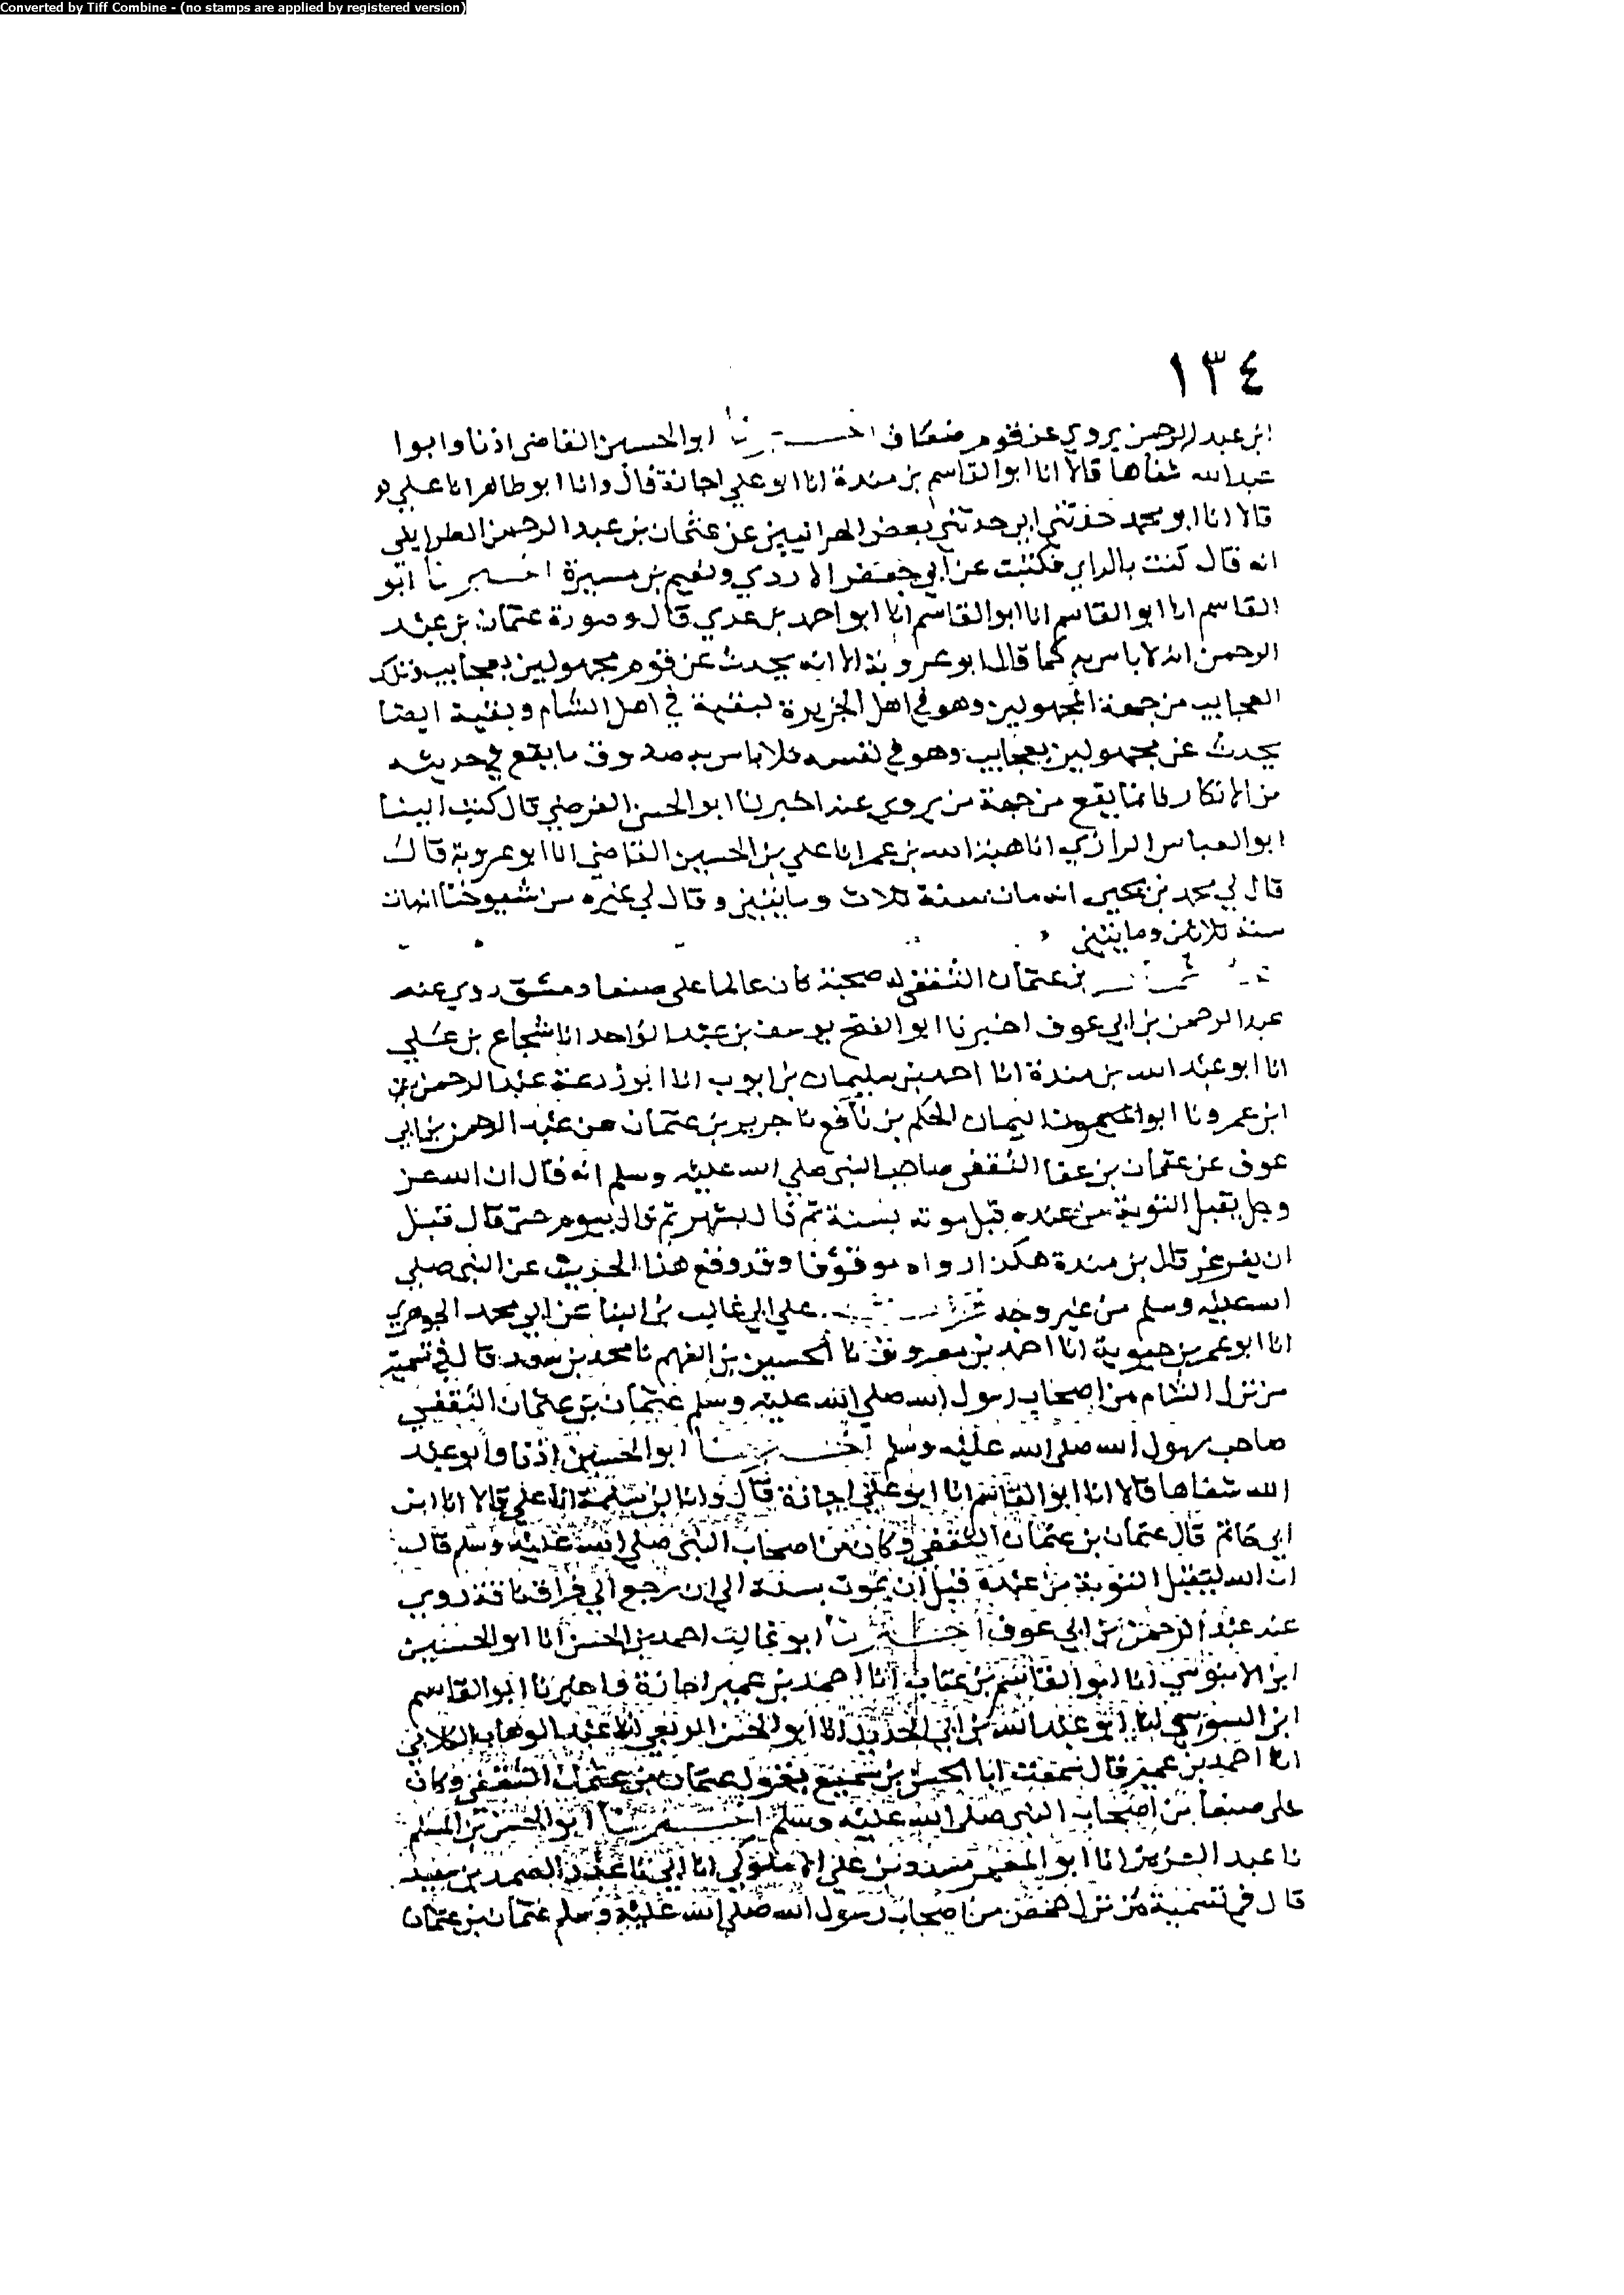 Converted by Tiff Combine - (no stamps are applied by registered version)
١٣٤
ابن عبد الرحمن يروي عن قوم ضعاف اخبرنا ابو الحسين القاضي اذنا وابوا
عبد الله شفاها قالا انا ابو القاسم بن مندة انا ابو علي اجازة قال وانا ابو طاهر انا علي
قالا انا ابو محمد حدثني ابي حدثني بعض الحرانيين عن عثمان بن عبد الرحمن الطرايفي
انه قال كنت بالراي فكتبت عن ابي جعفر الرازي ونعيم بن ميسرة اخبرنا ابو
القاسم انا ابو القاسم انا ابو القاسم انا ابو احمد بن عدي قال وصورة عثمان بن عبد
الرحمن انه لا باس به كما قال ابو عروبة الا انه يحدث عن قوم مجهولين بعجايب وتلك
العجايب من جهة المجهولين وهو في اهل الجزيرة كبقية في اهل الشام وبقية ايضا
يحدث عن مجهولين بعجايب وهو في نفسه فلا باس به صدوق ما يقع في حديثه
من الانكار فانما يقع من جهة من يروي عنه اخبرنا ابو الحسن الفرضي قال كتب الينا
ابو العباس الرازي انا هبة الله بن عمر انا علي بن الحسين القاضي انا ابو عروبة قال
قال لي محمد بن يحيى انه مات سنة ثلاث ومايتين وقال لي غيره من شيوخنا انه مات
سنة ثلاثين ومايتين
بن عثمان الثقفي له صحبة كان عاملا على صنعا دمشق روي عنه
عبد الرحمن بن ابي عوف اخبرنا ابو الفتح يوسف بن عبد الواحد انا شجاع بن علي
انا ابو عبد الله بن مندة انا احمد بن سليمان بن ايوب انا ابو زرعة عبد الرحمن بن
ابن عمرو نا ابو اليمان الحكم بن نافع نا جرير بن عثمان عن عبد الرحمن بن ابي
عوف عن عثمان بن عفا الثقفي صاحب النبي صلي الله عليه وسلم انه قال ان الله عز
وجل يقبل التوبة من عبده قبل موته بسنة ثم قال بشهر ثم قال بيوم حتى قال قبل
ان يغرغر قال بن مندة هكذا رواه موقوفا وقد رفع هذا الحديث عن النبي صلي
الله عليه وسلم من غير وجه علي ابي غالب بن البنا عن ابي محمد الجوهري
انا ابو عمر بن حيوية انا احمد بن معروف نا الحسين بن الفهم نا محمد بن سعد قال في تسمية
من نزل الشام من اصحاب رسول الله صلي الله عليه وسلم عثمان بن عثمان الثقفي
صاحب رسول الله صلى الله عليه وسلم اخبرنا ابو الحسين اذنا وابو عبد
الله شفاها قالا انا ابو القاسم انا ابو علي اجازة قال وانا بن سلمة انا علي قالا انا ابن
ابي حاتم قال عثمان بن عثمان الثقفي وكان من اصحاب النبي صلي الله عليه وسلم قال
ان الله ليقبل التوبة من عبده قبل ان يموت بسنة الي ان رجع الي فراقنا قد روي
عنه عبد الرحمن بن ابي عوف اخبرنا ابو غالب احمد بن الحسن انا ابو الحسين
ابن الابنوسي انا ابو القاسم بن عتاب انا احمد بن عمير اجازة فاخبرنا ابو القاسم
ابن السوسي انا ابو عبد الله بن ابي الحديد انا ابو الحسن الربعي انا عبد الوهاب الكلابي
انا احمد بن عمير قال سمعت ابا الحسن بن سميع يقول عثمان بن عثمان الثقفي وكان
على صنعا من اصحاب النبي صلى الله عليه وسلم اخبرنا ابو الحسن بن المسلم
نا عبد العزيز انا ابو المعمر مسدد بن علي الاملوكي انا ابي نا عبد الصمد بن سعيد
قال في تسمية من نزل حمص من اصحاب رسول الله صلي الله عليه وسلم عثمان بن عثمان